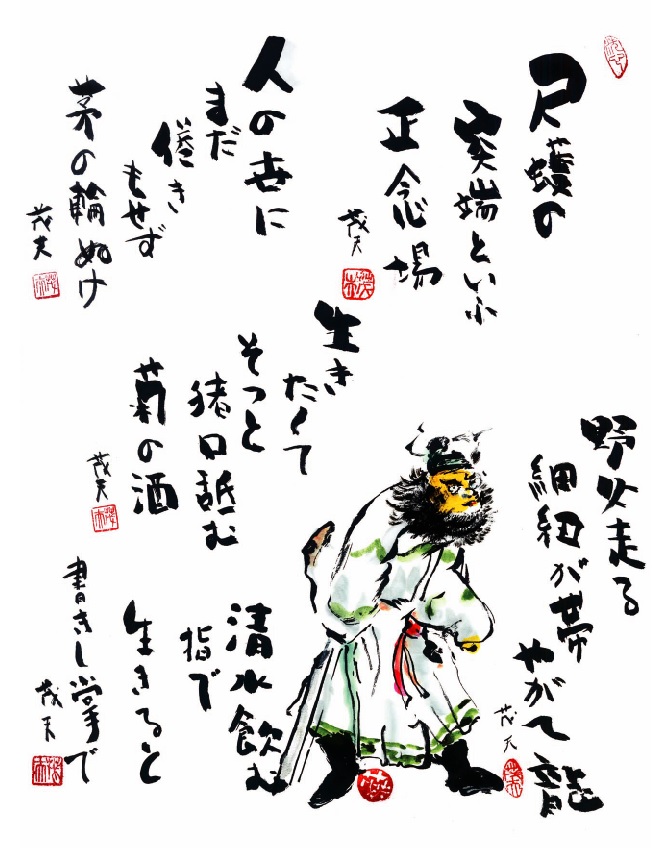 尺蠖の
突端といふ
正念場
茂夫
人の世に
まだ
倦き
もせず
茅の輪ぬけ
茂夫
生き
たくて
そつと
猪口舐む
菊の酒
茂夫
野火走る
細紐が帯
やがて龍
茂夫
清水飲む
指で
生きると
書きし掌で
茂夫